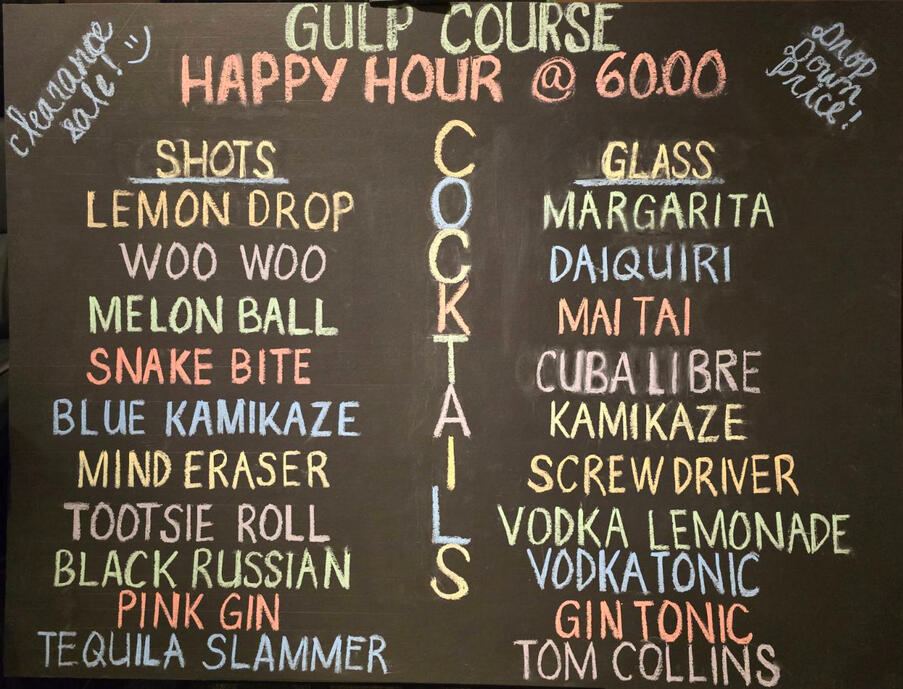 GULP COURSE
HAPPY HOUR @ 60.00
clearance
sale! :)
Drop
Down
Price!
COCKTAILS
SHOTS
LEMON DROP
WOO WOO
MELON BALL
SNAKE BITE
BLUE KAMIKAZE
MIND ERASER
TOOTSIE ROLL
BLACK RUSSIAN
PINK GIN
TEQUILA SLAMMER
GLASS
MARGARITA
DAIQUIRI
MAI TAI
CUBA LIBRE
KAMIKAZE
SCREW DRIVER
VODKA LEMONADE
VODKA TONIC
GIN TONIC
TOM COLLINS